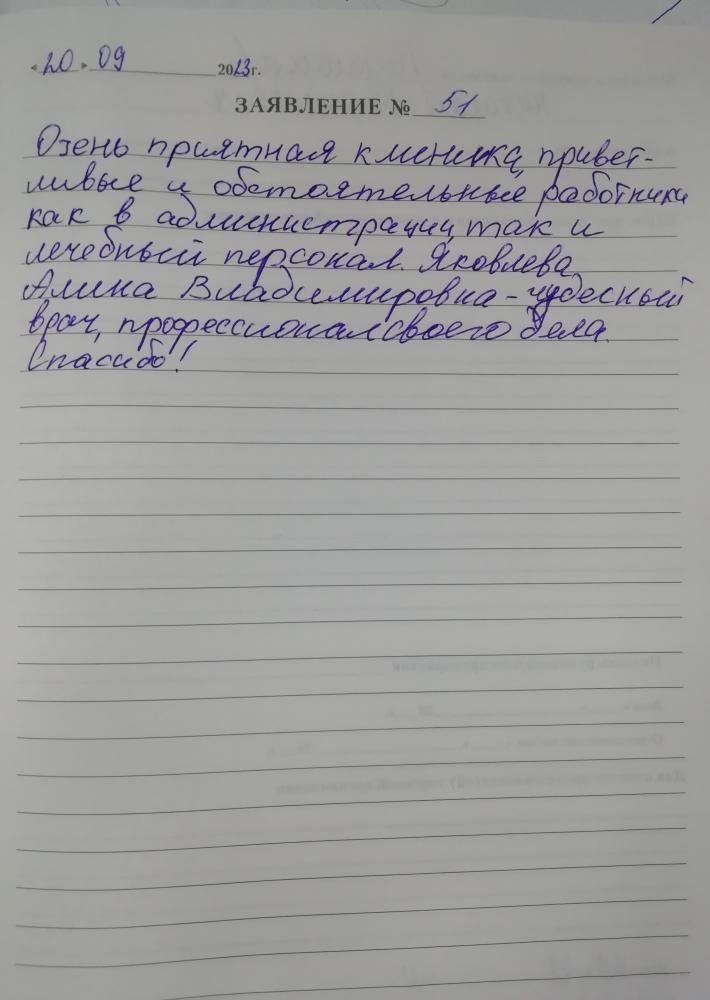 «20» 09 2023г.
ЗАЯВЛЕНИЕ № 51
Очень приятная клиника, привет-
ливые и обстоятельные работники
как в администрации, так и
лечебный персонал. Яковлева
Алина Владимировна - чудесный
врач, профессионал своего дела.
Спасибо!